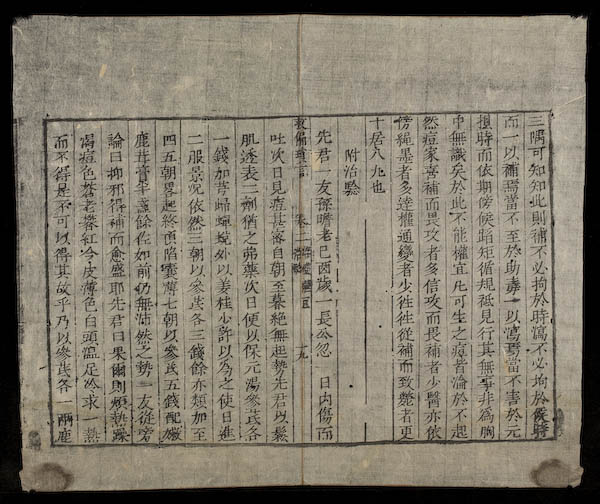 三隅可知知此則補不必拘於時瀉不必拘於時
而一以補焉當不至於助毒一以瀉焉當不害於元
時而依期傍候蹈矩循規袛見行其無事非為胸
中無識矣於此不能權宜凡可生之痘者淪於不起
然痘家喜補而畏攻者多信攻而畏補者少醫亦依
傍繩墨者多達權通變者少徃徃從補而致斃者更
十居八九也
附治驗
先君一友孫瞻老己酉歲一長公忽 日内傷而
救偏瑣言 卷二 一九
吐次日見痘甚密自朝至暮絶無起勢先君以鬆
肌透表二劑猶之弗藥次日便以保元湯參芪各
一錢加芎歸蟬蛻外以姜桂少許以為之使日進
二服景况依然三朝以參芪各三錢餘亦類加至
四五朝畧起終頂陷囊薄七朝以參芪五錢配
鹿茸膏半盞餘佐如前仍無沛然之勢一友從旁
論曰抑邪得補而愈盛耶先君曰果爾則煩熱躁
渴痘色蒼老礬紅今皮薄色白頭溫足冷求一熱
而不得是不可以得其故乎乃以參芪各一兩鹿